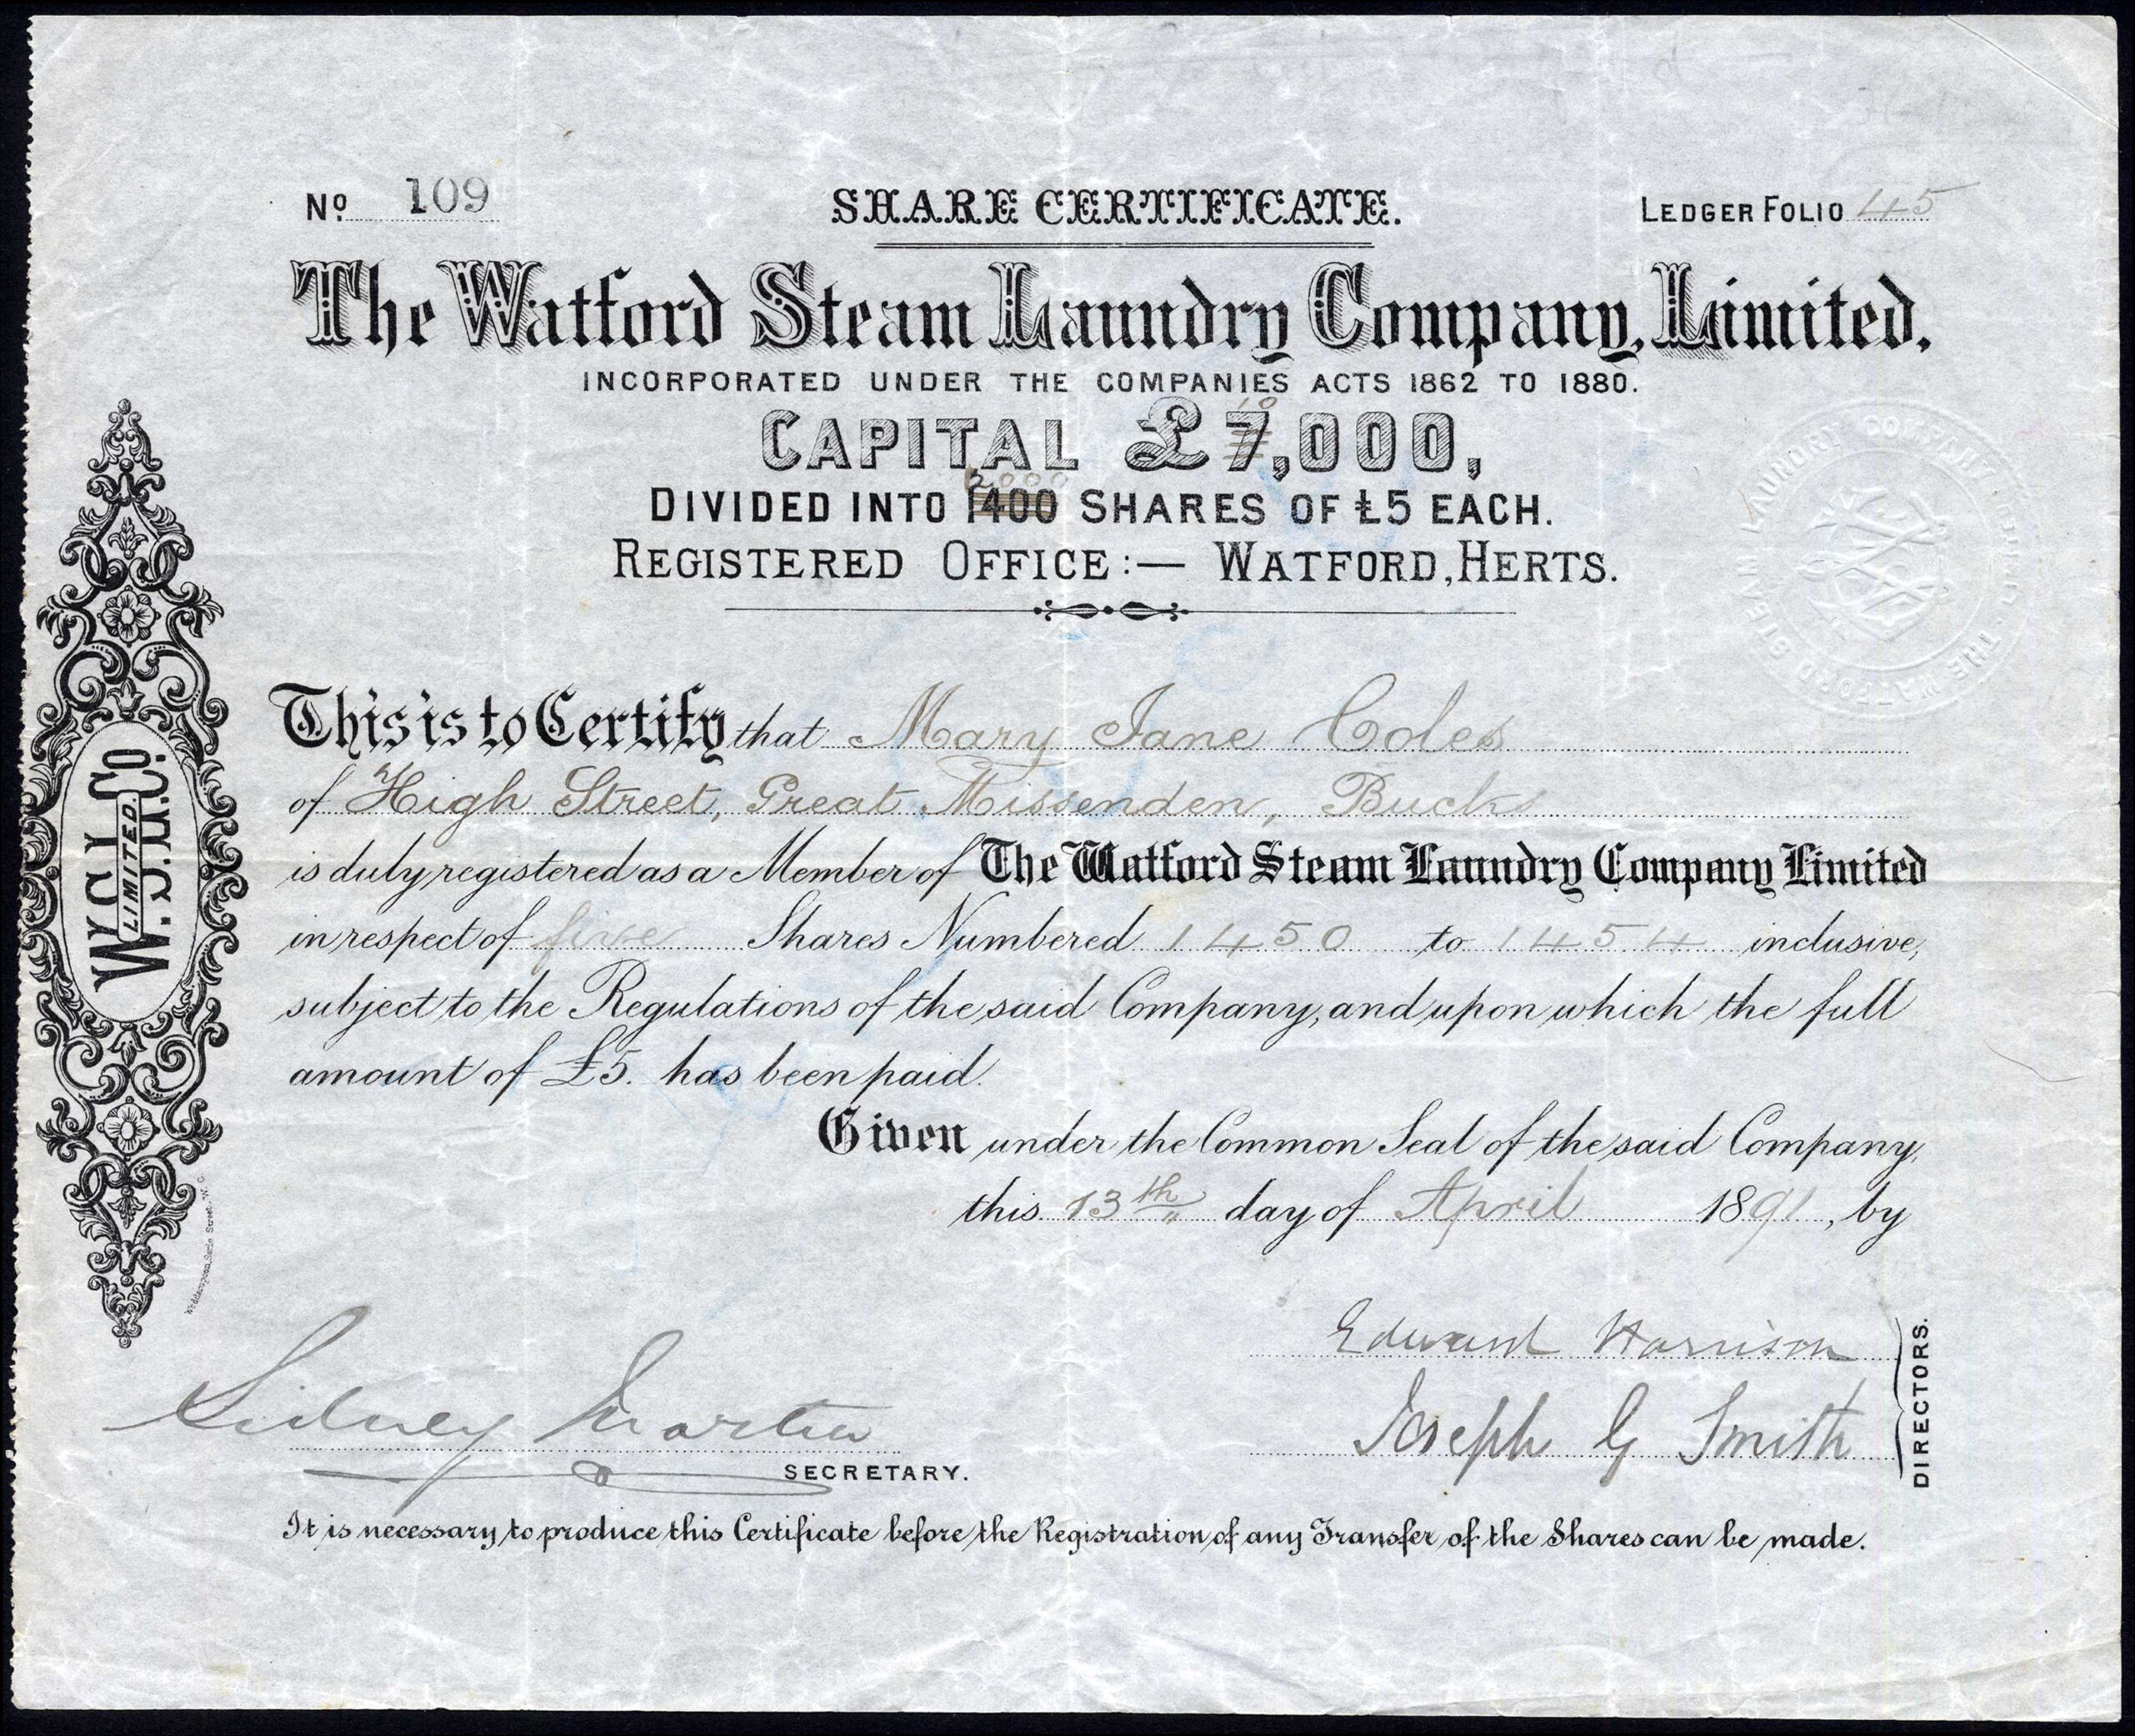 Nº 109
SHARE CERTIFICATE.
LEDGER FOLIO 45
The Watford Steam Laundry Company, Limited,
INCORPORATED UNDER THE COMPANIES ACTS 1862 TO 1880.
10
CAPITAL £7,000,
2000
DIVIDED INTO 1400 SHARES OF £5 EACH.
REGISTERED OFFICE:— WATFORD, HERTS.
THE WATFORD STEAM LAUNDRY COMPANY LIMITED
This is to Certify that Mary Jane Coles
of High Street, Great Missenden, Bucks
is duly registered as a Member of The Watford Steam Laundry Company Limited
in respect of five Shares Numbered 1450 to 1454 inclusive,
subject to the Regulations of the said Company, and upon which the full
amount of £5. has been paid.
Given under the Common Seal of the said Company,
this 13th day of April 1891, by
W.S.L.Co.
LIMITED.
Weddarspoon, Serle Street, W.C.
Edward Harrison
Joseph G Smith
DIRECTORS.
Sidney Martin
SECRETARY.
It is necessary to produce this Certificate before the Registration of any Transfer of the Shares can be made.